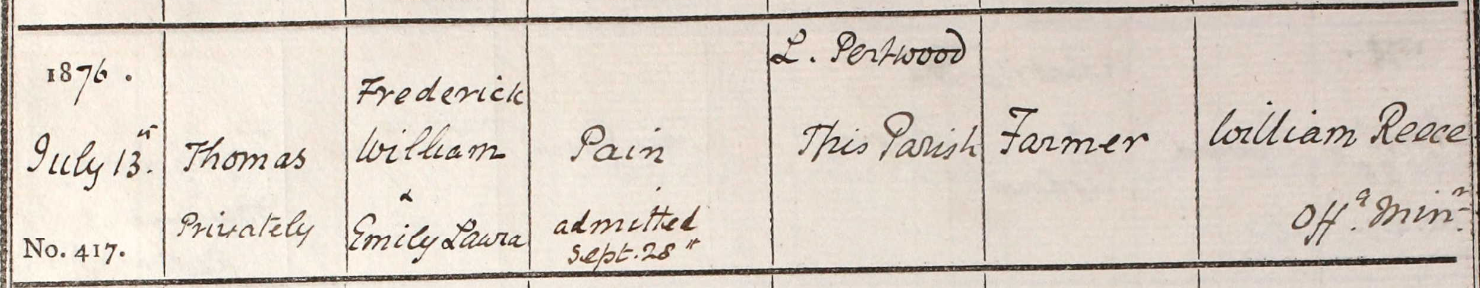 1876.
July 13"
No. 417.
Thomas
Privately
Frederick
William
&
Emily Laura
Pain
admitted
Sept. 28"
L. Pertwood
This Parish
Farmer
William Reece
Offg. Minr.